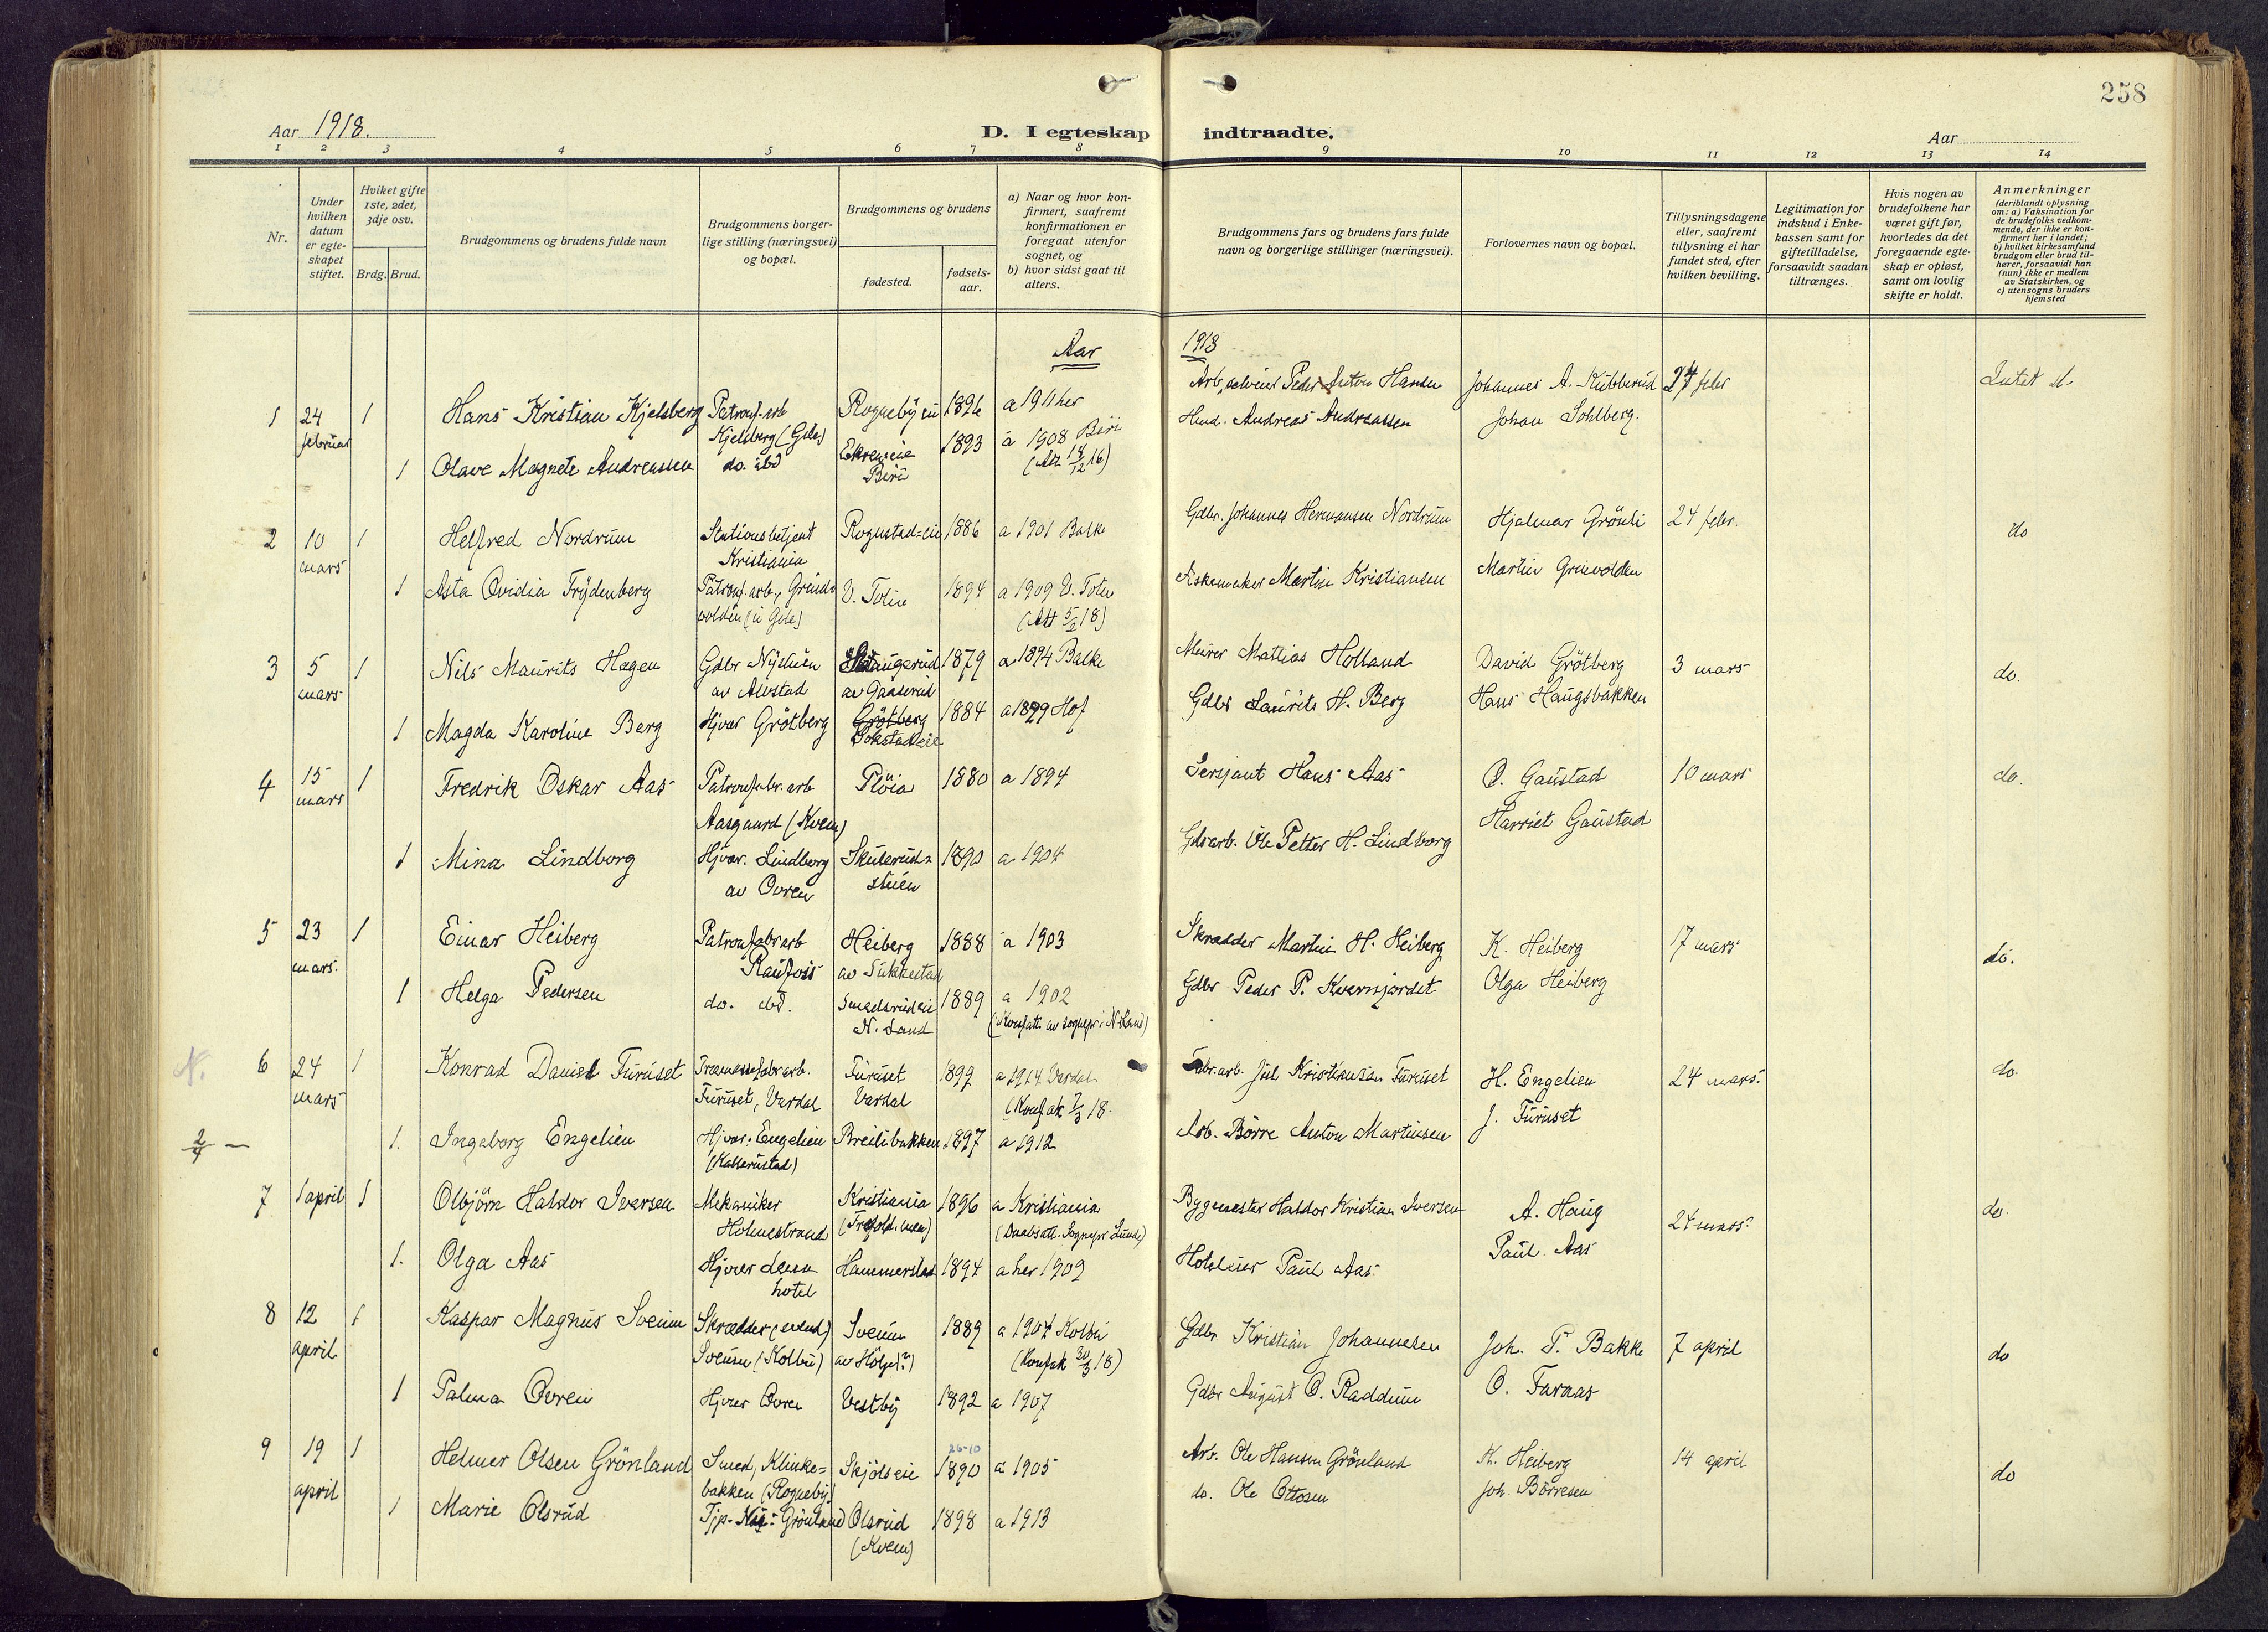 258
Aar 1918.
D. I egteskap indtraadte.
Aar
1 2 3 4 5 6 7 8 9 10 11 12 13 14
Nr.
Under hvilken datum er egteskapet stiftet.
Hviket gifte 1ste, 2det, 3dje osv.
Brdg. Brud.
Brudgommens og brudens fulde navn
Brudgommens borgerlige stilling (næringsvei) og bopæl.
Brudgommens og brudens
fødested.
fødselsaar.
a) Naar og hvor konfirmert, saafremt konfirmationen er foregaat utenfor sognet, og
b) hvor sidst gaat til alters.
Brudgommens fars og brudens fars fulde navn og borgerlige stillinger (næringsvei).
Forlovernes navn og bopæl.
Tillysningsdagene eller, saafremt tillysning ei har fundet sted, efter hvilken bevilling.
Legitimation for indskud i Enkekassen samt for giftetilladelse, forsaavidt saadan tiltrænges.
Hvis nogen av brudefolkene har været gift før, hvorledes da det foregaaende egteskap er opløst, samt om lovlig skifte er holdt.
Anmerkninger (deriblandt oplysning om: a) Vaksination for de brudefolks vedkommende, der ikke er konfirmert her i landet; b) hvilket kirkesamfund brudgom eller brud tilhører, forsaavidt han (hun) ikke er medlem av Statskirken, og c) utensogns bruders hjemsted
Aar 1918
1 24 februar 1 Hans Kristian Kjelsberg Patronf. arb Kjelsberg (Gile) Rognebyeie 1896 a 1911 her Peder Anton Hansen Johannes A. Kubberud 24 febr Intet
1 Olave Magnete Andreassen do. ibd Ekremeie Biri 1893 a 1908 Biri (Att 18/12 16) Andreas Andreassen Johan Sohlberg.
2 10 mars 1 Helfred Nordrum Stationsbetjent Kristiania Rognstad=eie 1886 a 1901 Balke Gdbr. Johannes Hermansen Nordrum Hjalmar Grönli 24 febr. do
1 Asta Ovidia Frydenberg Patronf. arb., Grindvolden (u Gile) V. Toten 1894 a 1909 V. Toten (Att 5/2 18) Martin Kristiansen Martin Grinvolden
3 5 mars 1 Nils Maurits Hagen Gdbr Nystuen av Alvstad av Gaaserud 1879 a 1894 Balke Murer Mattias Holland David Grötberg 3 mars do.
1 Magda Karoline Berg Hjvær Grötberg Grötberg Sokstadeie 1884 a 1899 Hof Gdbr Laurits H. Berg Hans Haugsbakken
4 15 mars 1 Fredrik Oskar Aas Patronfabr. arb Aasgaard (Kvem) Plöia 1880 a 1894 Serjant Hans Aas O. Gaustad 10 mars do.
1 Mina Lindborg Hjvær. Lindborg av Ovren Skulerudstuen 1890 a 1904 Gdsarb. Ole Petter H. Lindborg Harriet Gaustad
5 23 mars. 1 Einar Heiberg Patronfabrarb Raufoss Heiberg av Sukkestad 1888 a 1903 Skrædder Martin H. Heiberg K. Heiberg 17 mars do.
1 Helga Pedersen do. ibd. Smedsrudeie N. Land 1889 a 1902 (Konfatt. av sognepr i N Land) Gdbr Peder P. Kvernjordet Olga Heiberg
N. 6 24 mars 1 Konrad Daniel Furuset Furuset, Vardal Furuset Vardal 1899 a 1914 Vardal (Konfak 7/3 18. Fabr. arb. Jul Kristiansen Furuset H. Engelien 24 mars. do.
2/4 — 1. Ingeborg Engelien Hjvær. Engelien (Kallerustad) Breilibakken 1897 a 1912 Arb. Börre Anton Martinsen J. Furuset
7 1 april 1 Olbjörn Haldor Iversen Mekaniker Holmestrand Kristiania 1896 a Kristiania (Daabsatt. Sognepr Lunde) Bygmester Haldor Kristian Iversen A. Haug 24 mars. do.
1. Olga Aas Hjvær Lena hotel Hammerstad 1894 a her 1909 Hoteleier Paul Aas. Paul Aas
8 12 april 1 Kaspar Magnus Sveum Skrædder (svend) Sveum (Kolbu) Sveum av Hölje(?) 1889 a 1904 Kolbu (Konfak 30/3 18) Gdbr. Kristian Johannesen Joh. P. Bakke 7 april do
1 Palma Ovren Hjvær Ovren Vestby 1892 a 1907 Gdbr August O. Raddum O. Farnas
9 19 april 1 Helmer Olsen Grönland Smed, Klinkebakken (Rogneby) Skjölseie 26-10 1890 a 1905 Arb. Ole Hansen Grönland K. Heiberg 14 april do
1 Marie Olsrud Tjp. Grönland Olsrud (Kvem) 1898 a 1913 do. Ole Ottosen Joh. Börresen